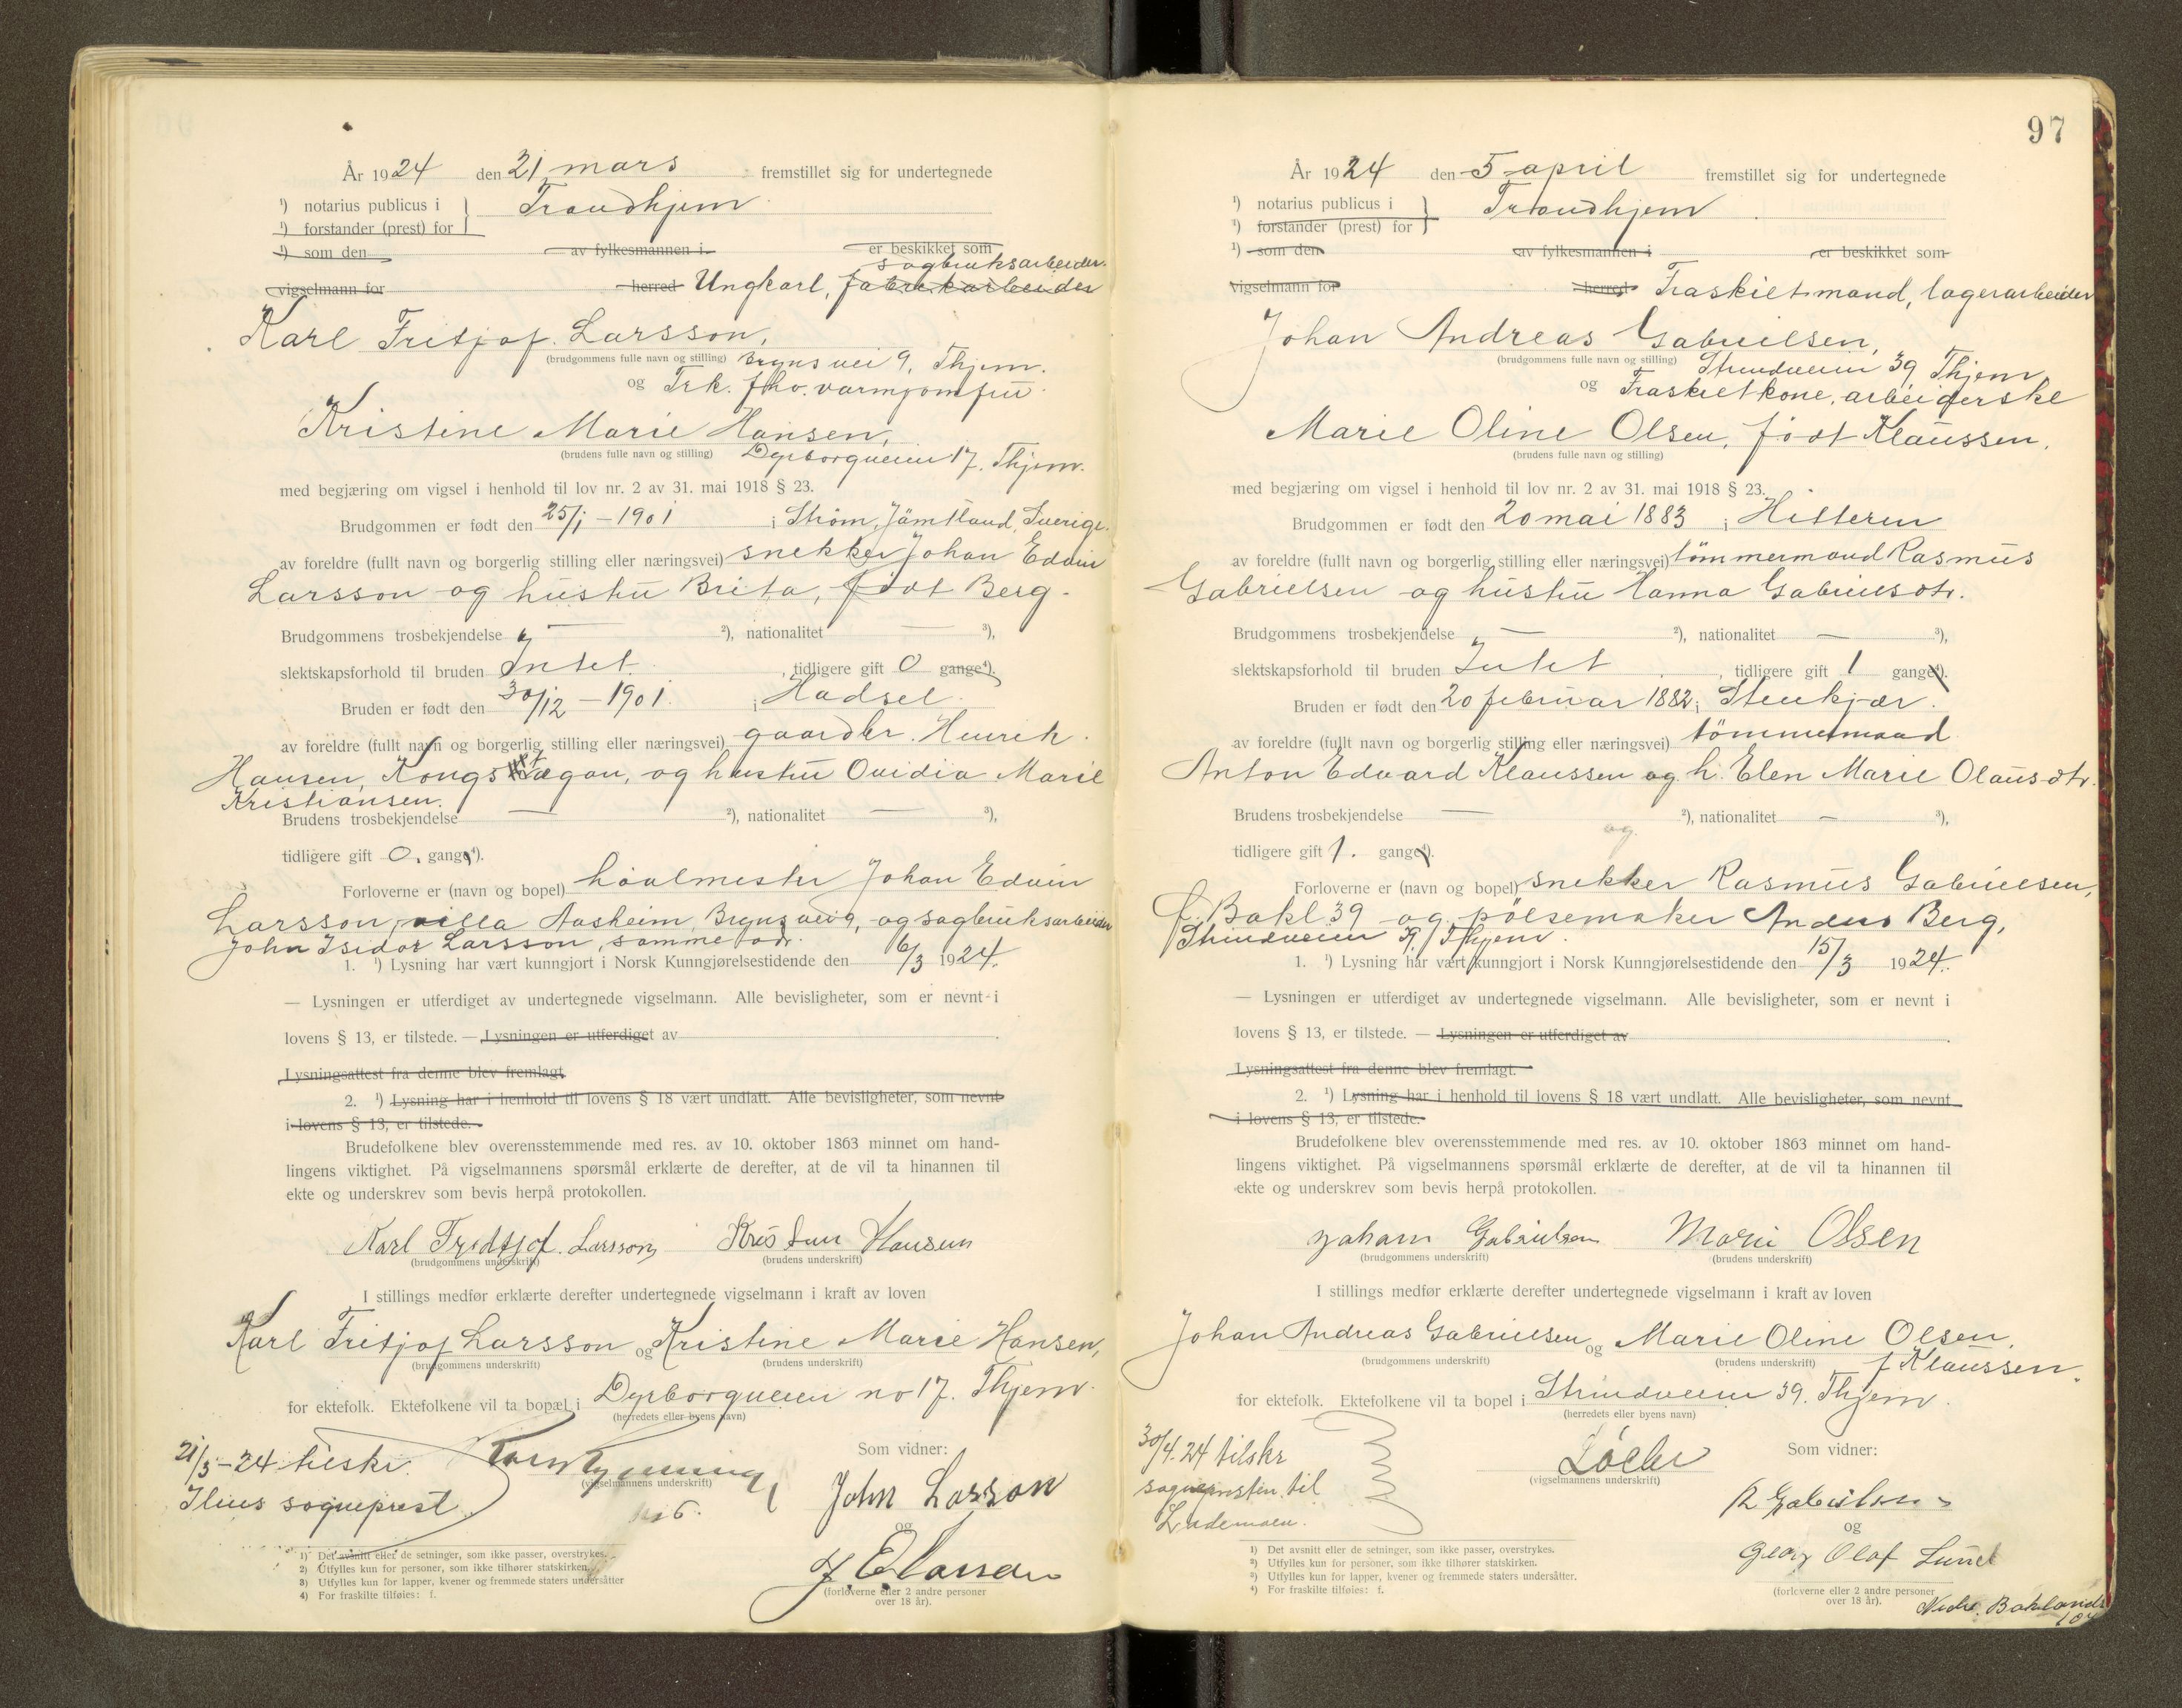 År 1924 den 21 mars fremstillet sig for undertegnede
¹) notarius publicus i } Trondhjem
¹) forstander (prest) for
¹) som den av fylkesmannen i er beskikket som
sagbruksarbeider.
vigselmann for herred Ungkarl, fabrikarbeider
Karl Fritjof Larsson,
(brudgommens fulle navn og stilling) Bryns vei 9, Thjem.
og Frk. fhv. varmjomfru
Kristine Marie Hansen,
(brudens fulle navn og stilling) Dyrborgveien 17, Thjem.
med begjæring om vigsel i henhold til lov nr. 2 av 31. mai 1918 § 23.
Brudgommen er født den 25/1 – 1901 i Ström, Jämtland, Sverige.
av foreldre (fullt navn og borgerlig stilling eller næringsvei) snekker Johan Edvin
Larsson og hustru Brita, født Berg.
Brudgommens trosbekjendelse — ²), nationalitet — ³),
slektskapsforhold til bruden Intet , tidligere gift 0 gange⁴).
Bruden er født den 30/12 – 1901 i Hadsel
av foreldre (fullt navn og borgerlig stilling eller næringsvei) gaardbr. Henrik
Hansen, Kongs vågan, og hustru Ovidia Marie
Kristiansen.
Brudens trosbekjendelse — ²), nationalitet — ³),
tidligere gift 0. gange⁴).
Forloverne er (navn og bopel) hövlmester Johan Edvin
Larsson, villa Aasheim, Bryns vei 9, og sagbruksarbeider
John Isidor Larsson, samme adr.
1. ¹) Lysning har vært kunngjort i Norsk Kunngjørelsestidende den 6/3 1924.
— Lysningen er utferdiget av undertegnede vigselmann. Alle bevisligheter, som er nevnt i
lovens § 13, er tilstede. — Lysningen er utferdiget av
Lysningsattest fra denne blev fremlagt.
2. ¹) Lysning har i henhold til lovens § 18 vært undlatt. Alle bevisligheter, som nevnt
i lovens § 13, er tilstede.
Brudefolkene blev overensstemmende med res. av 10. oktober 1863 minnet om hand-
lingens viktighet. På vigselmannens spørsmål erklærte de derefter, at de vil ta hinannen til
ekte og underskrev som bevis herpå protokollen.
Karl Fridtjof. Larsson Kristine Hansen
(brudgommens underskrift) (brudens underskrift)
I stillings medfør erklærte derefter undertegnede vigselmann i kraft av loven
Karl Fritjof Larsson og Kristine Marie Hansen,
(brudgommens underskrift) (brudens underskrift)
for ektefolk. Ektefolkene vil ta bopæl i Dyrborgveien no 17. Thjem.
(herredets eller byens navn)
21/3 – 24 tilskr. Som vidner:
(vigselmannens underskrift)
Ilens sogneprest. John Larsson
og
J. E. Larsson
(forloverne eller 2 andre personer
over 18 år).
1) Det avsnitt eller de setninger, som ikke passer, overstrykes.
2) Utfylles kun for personer, som ikke tilhører statskirken.
3) Utfylles kun for lapper, kvener og fremmede staters undersåtter
4) For fraskilte tilføies: f.
97
År 1924 den 5 april fremstillet sig for undertegnede
¹) notarius publicus i } Trondhjem
¹) forstander (prest) for
¹) som den av fylkesmannen i er beskikket som
vigselmann for herred Fraskilt mand, lagerarbeider
Johan Andreas Gabrielsen,
(brudgommens fulle navn og stilling) Strindveien 39 Thjem
og Fraskilt kone, arbeiderske
Marie Oline Olsen, født Klaussen,
(brudens fulle navn og stilling)
med begjæring om vigsel i henhold til lov nr. 2 av 31. mai 1918 § 23.
Brudgommen er født den 20 mai 1883 i Hitteren
av foreldre (fullt navn og borgerlig stilling eller næringsvei) tömmermand Rasmus
Gabrielsen og hustru Hanna Gabrielsdtr.
Brudgommens trosbekjendelse — ²), nationalitet — ³),
slektskapsforhold til bruden Intet , tidligere gift 1 gange⁴).
Bruden er født den 20 februar 1882 i Stenkjær.
av foreldre (fullt navn og borgerlig stilling eller næringsvei) tömmermand
Anton Edvard Klaussen og h. Elen Marie Olausdtr.
Brudens trosbekjendelse — ²), nationalitet — ³),
og
tidligere gift 1. gange⁴).
Forloverne er (navn og bopel) snekker Rasmus Gabrielsen,
Ø. Bakl 39 og pölsemaker Anders Berg,
Strindveien Thjem.
1. ¹) Lysning har vært kunngjort i Norsk Kunngjørelsestidende den 15/3 1924.
— Lysningen er utferdiget av undertegnede vigselmann. Alle bevisligheter, som er nevnt i
lovens § 13, er tilstede. — Lysningen er utferdiget av
Lysningsattest fra denne blev fremlagt.
2. ¹) Lysning har i henhold til lovens § 18 vært undlatt. Alle bevisligheter, som nevnt
i lovens § 13, er tilstede.
Brudefolkene blev overensstemmende med res. av 10. oktober 1863 minnet om hand-
lingens viktighet. På vigselmannens spørsmål erklærte de derefter, at de vil ta hinannen til
ekte og underskrev som bevis herpå protokollen.
Johan Gabrielsen Marie Olsen
(brudgommens underskrift) (brudens underskrift)
I stillings medfør erklærte derefter undertegnede vigselmann i kraft av loven
Johan Andreas Gabrielsen og Marie Oline Olsen,
(brudgommens underskrift) (brudens underskrift) f Klaussen.
for ektefolk. Ektefolkene vil ta bopel i Strindveien 39. Thjem.
(herredets eller byens navn)
30/4. 24 tilskr Som vidner:
(vigselmannens underskrift)
sognepresten til R Gabrielsen
Lademoen. og
Georg Olaf Lund
(forloverne eller 2 andre personer
over 18 år). Nedre Baklands
1) Det avsnitt eller de setninger, som ikke passer, overstrykes.
2) Utfylles kun for personer, som ikke tilhører statskirken.
3) Utfylles kun for lapper, kvener og fremmede staters undersåtter.
4) For fraskilte tilføies: f.